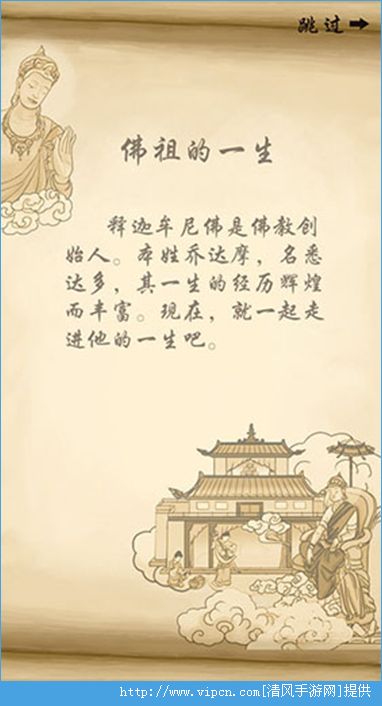 跳过
佛祖的一生
释迦牟尼佛是佛教创
始人。本姓乔达摩，名悉
达多，其一生的经历辉煌
而丰富。现在，就一起走
进他的一生吧。
http://www.vipcn.com[清风手游网]提供